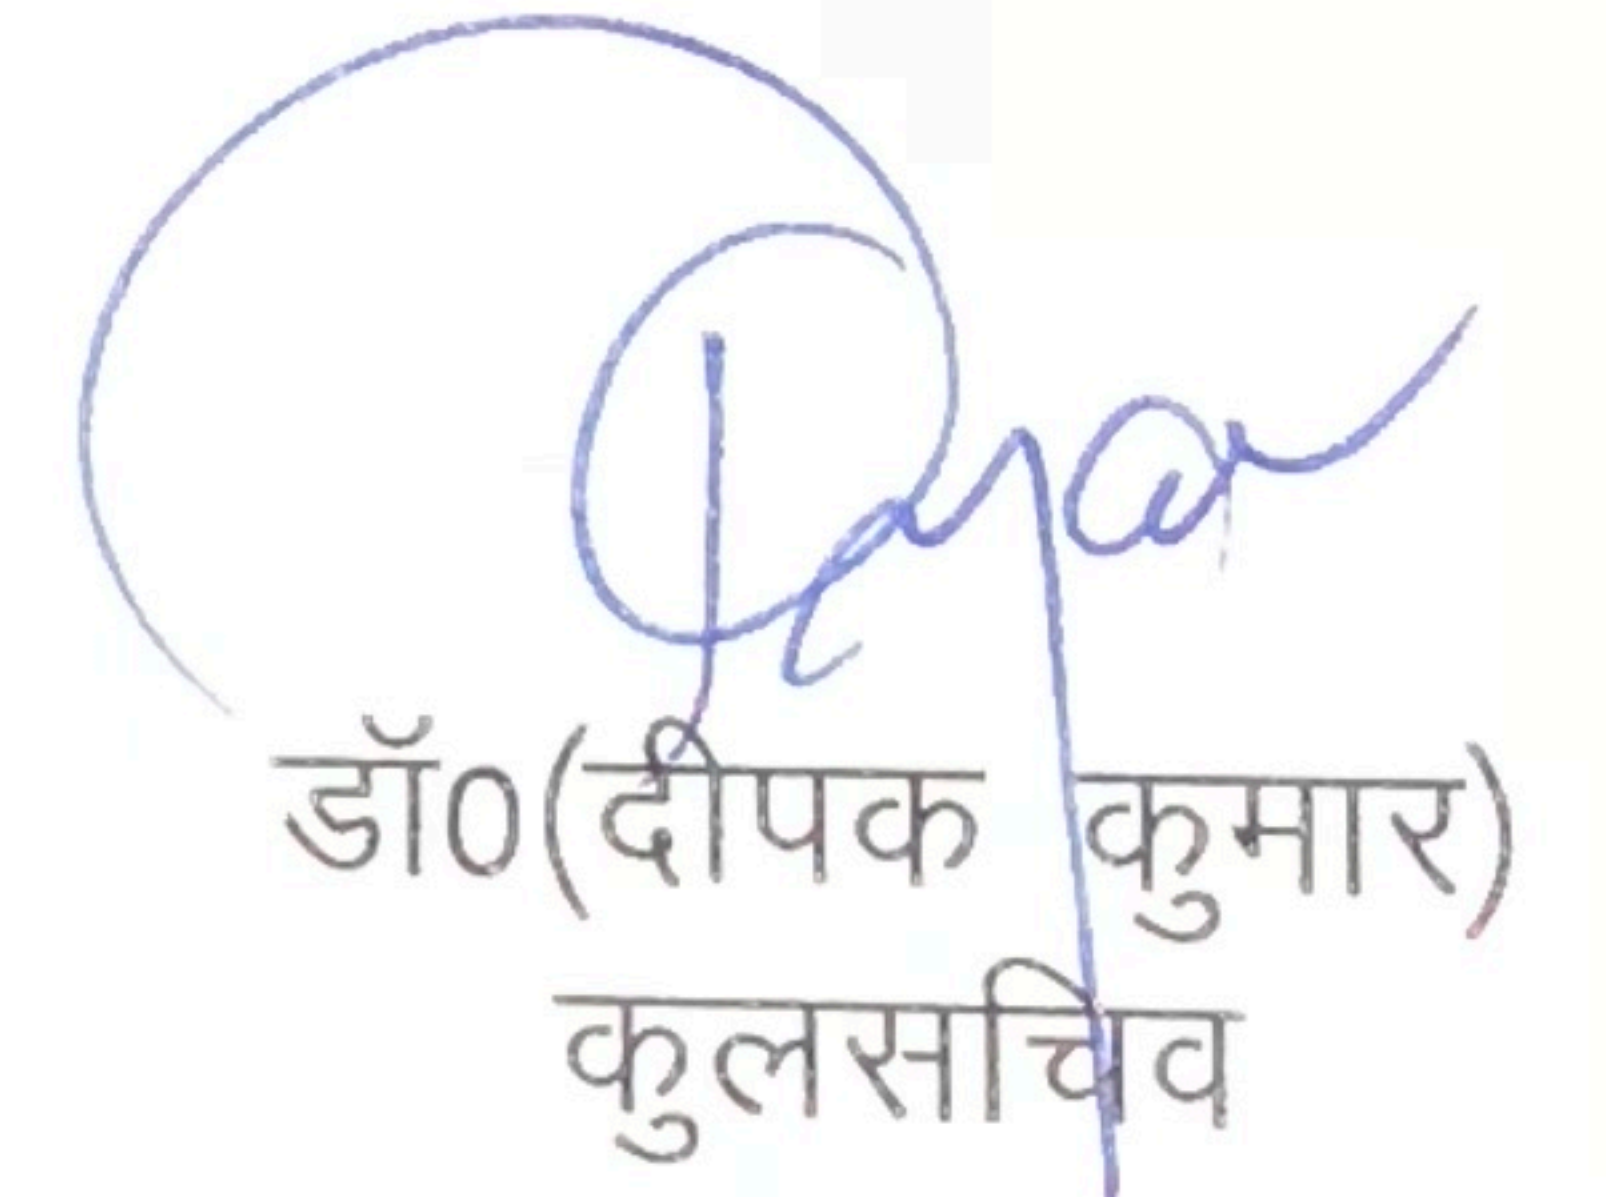 डॉ0(दीपक कुमार)
कुलसचिव